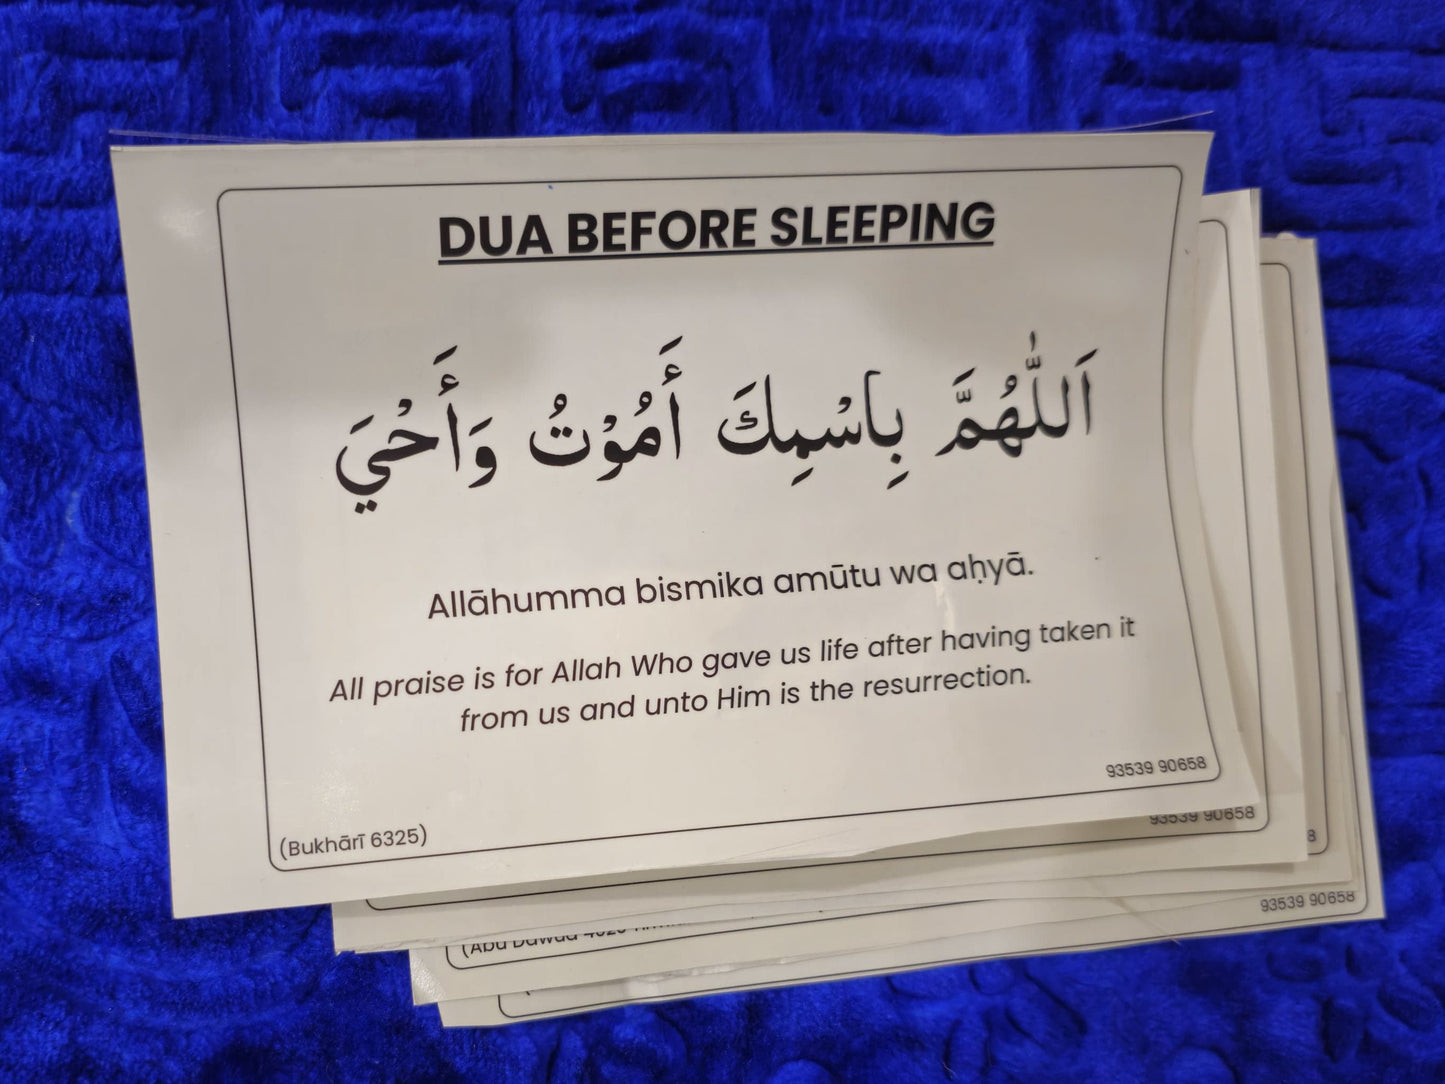 DUA BEFORE SLEEPING
اَللّٰهُمَّ بِاسْمِكَ أَمُوْتُ وَأَحْيَ
Allāhumma bismika amūtu wa aḥyā.
All praise is for Allah Who gave us life after having taken it
from us and unto Him is the resurrection.
93539 90658
(Bukhārī 6325)
93539 90658
8
93539 90658
(Abu Dawud